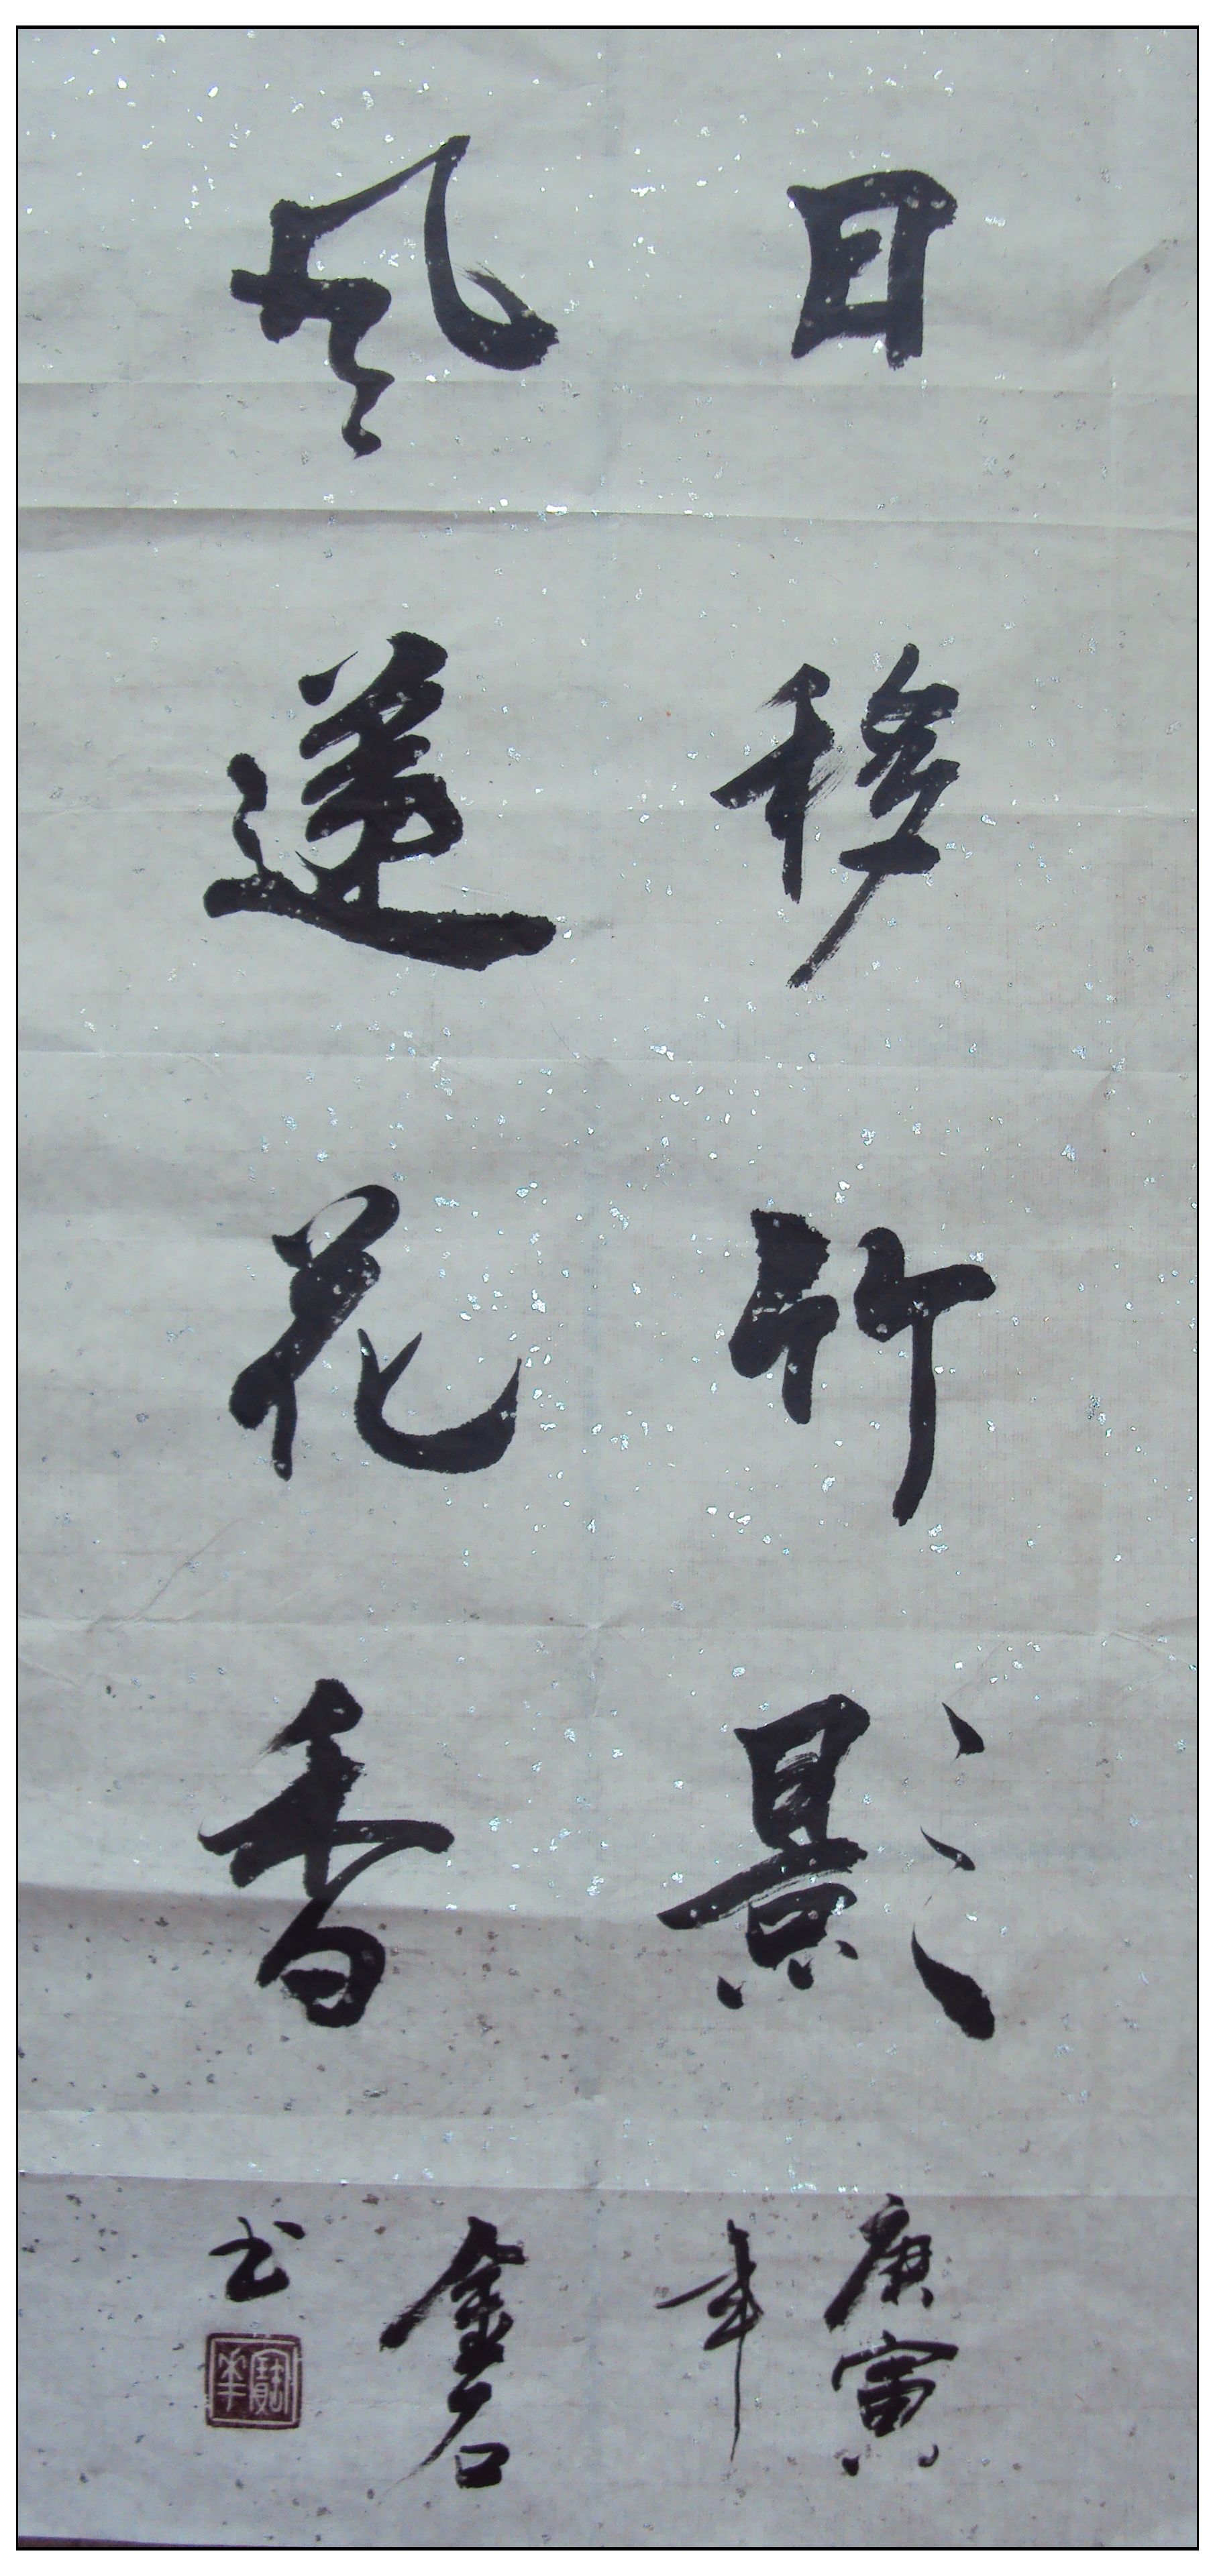 日移竹影
風送花香
庚寅
年
金石
书